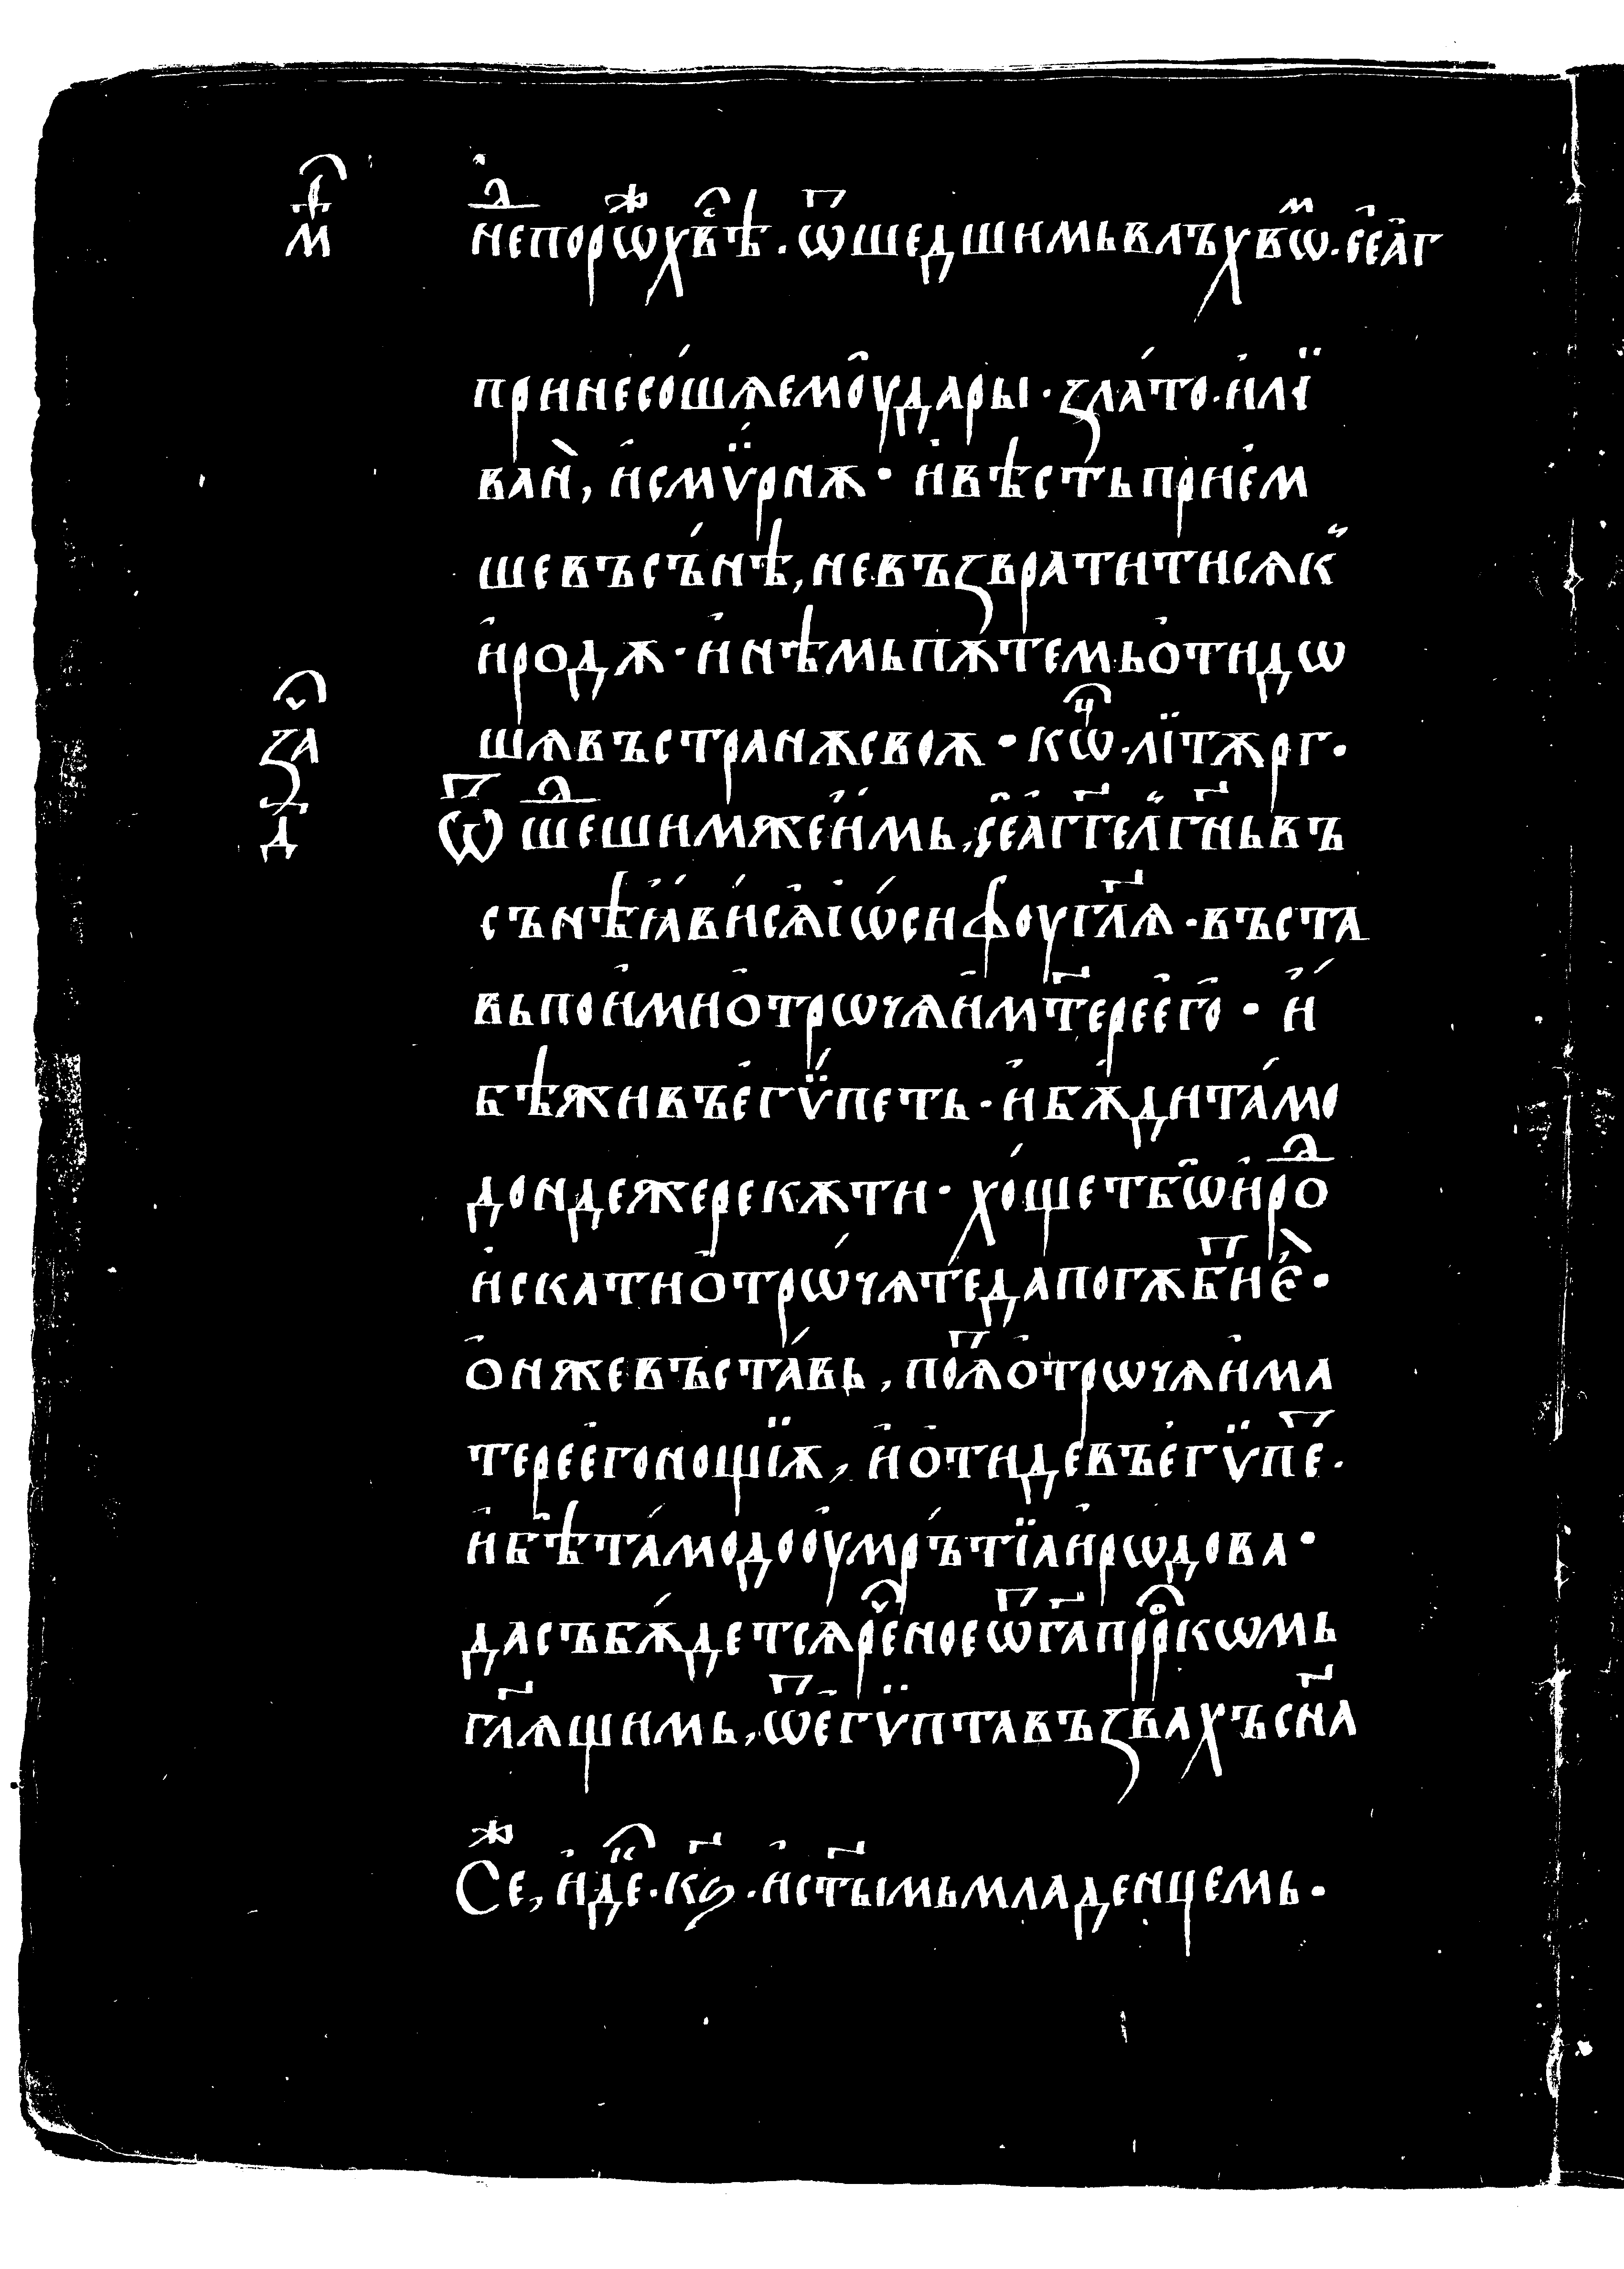 м҃т нⷣепорѡⷤхвⷭ҇ѣ. ѿшедшимь влъхвѡⷨ. се а҆г
принесо́шѧ емоу̑ дары · злато · и҆ лї
ва́н, и҆ смѵ̈рнѫ · и҆ вѣсть прие҆м
ше въ съ́нѣ, не възвратитисѧ к̾
и҆родѫ · и҆ нѣмь пѫтемь ѻ҆тидѡ
шѧ въ странѫ своѫ · кѡⷱ҇ · лїтѫрг ·
за҃ч
д
Ѿшеⷣшим же и҆мь, се а҆гг҃ел̾ г҃нь въ
сънѣ ꙗ҆ви́сѧ і҆ѡ́сифоу гл҃ѧ · въста
вь пои҆ми ѻ҆трѡчѧ и҆ мт҃ере е҆го̀ · и҆́
бѣжи въ е҆гѵ̈петь · и҆ бѫ́ди та́мо
дондеже рекѫ ти · хо́щет бѡ̑ и҆роⷣ
и҆скати ѻ҆трѡ́чѧте да погѫбⷫи є҆̀ ·
ѻ҆н же въста́вь, поⷫѧ ѻ҆трѡчѧ и҆ ма
тере е҆го нощїѫ, и҆ ѻ҆тиде въ е҆гѵ̈пеⷮ ·
и҆ бѣ та́мо до оу҆мръ́тїа и҆рѡдова ·
да събѫ́детсѧ реⷱ҇ное ѿ г҃а прⷪ҇ркѡмь
гл҃ѧщимь, ѿ е҆гѵ̈пта възвахъ сн҃а
Сеⷤ, и҆ деⷦ҇ · к҃ѕ · и҆ ст҃ымь младенцемь ·